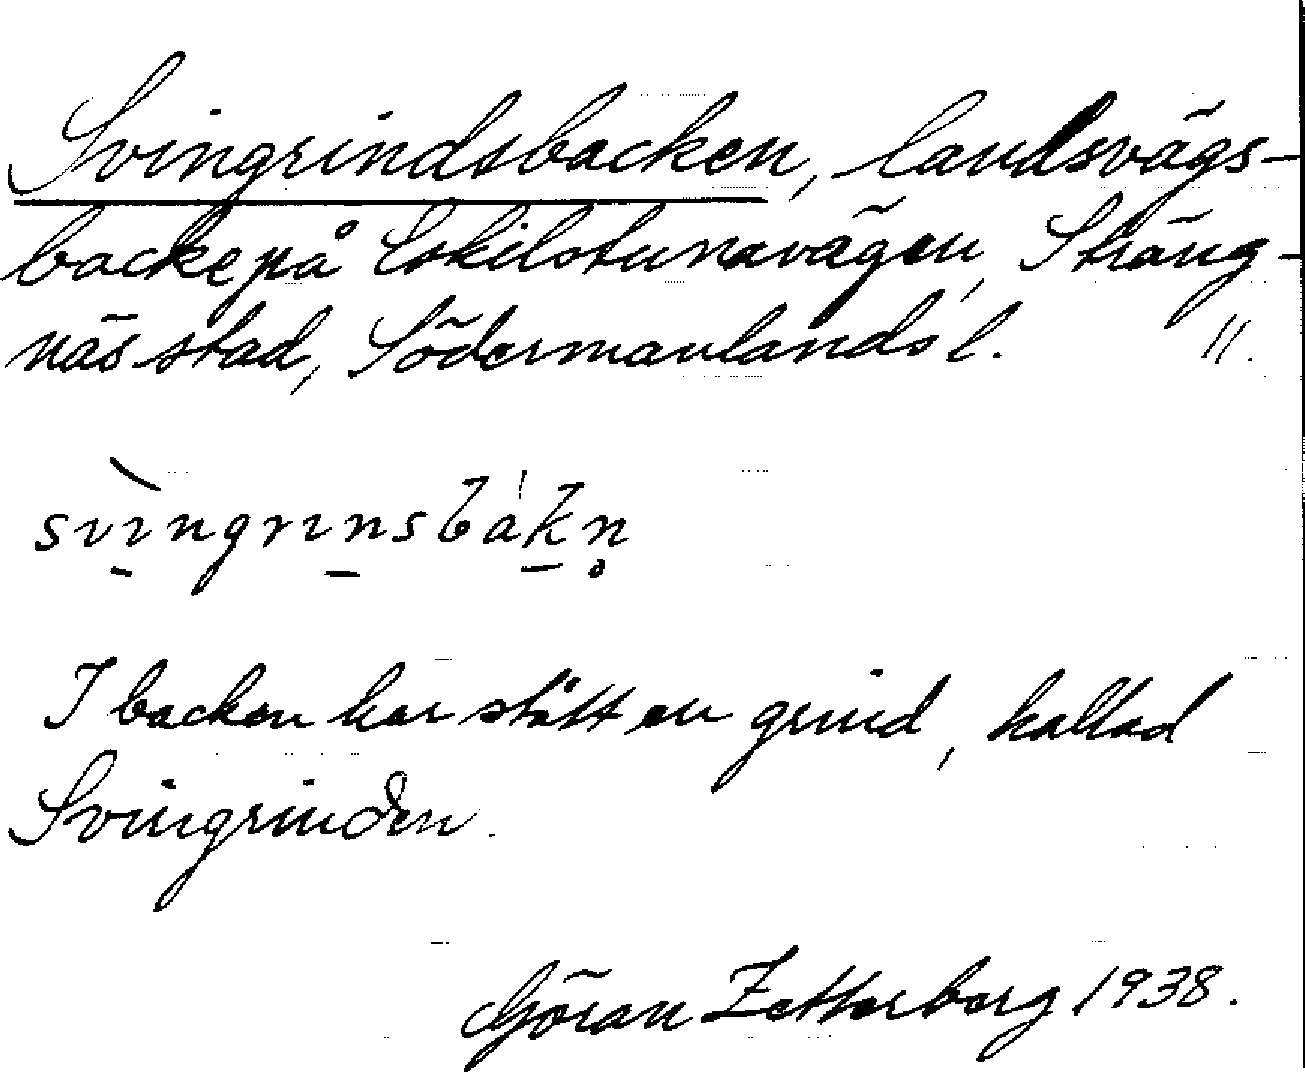 Svingrindsbacken, landsvägs-
backe på Eskilstunavägen, Sträng-
näs stad, Södermanlands l. 11.
svìngrinsbákn̥
I backen har stått en grind, kallad
Svingrinden.
Göran Zetterberg 1938.